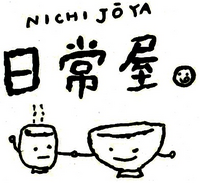 NICHIJŌYA
日常屋